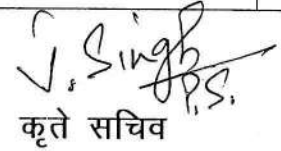 J. Singh
P.S.
कृते सचिव